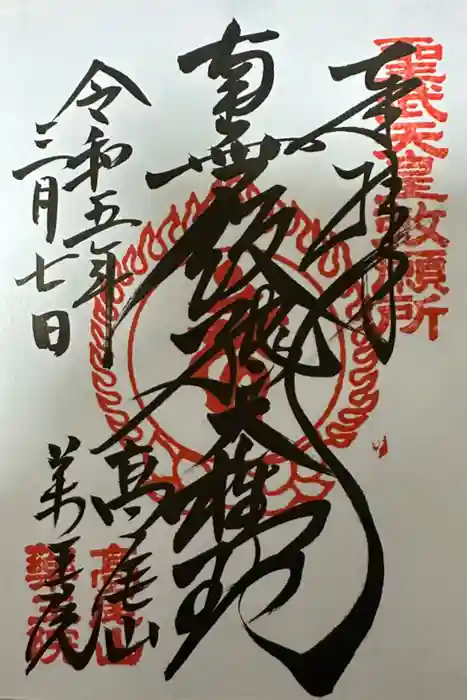 聖武天皇敕願所
奉拝
南無飯縄大権現
令和五年
三月七日
高尾山
薬王院